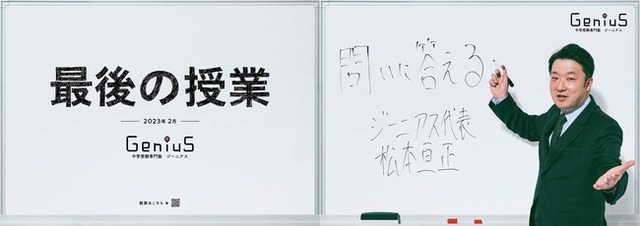 最後の授業
2023年 2月
GeniuS
中学受験専門塾 ジーニアス
動画はこちら ▶
GeniuS
中学受験専門塾 ジーニアス
問いに答える
ジーニアス代表
松本亘正